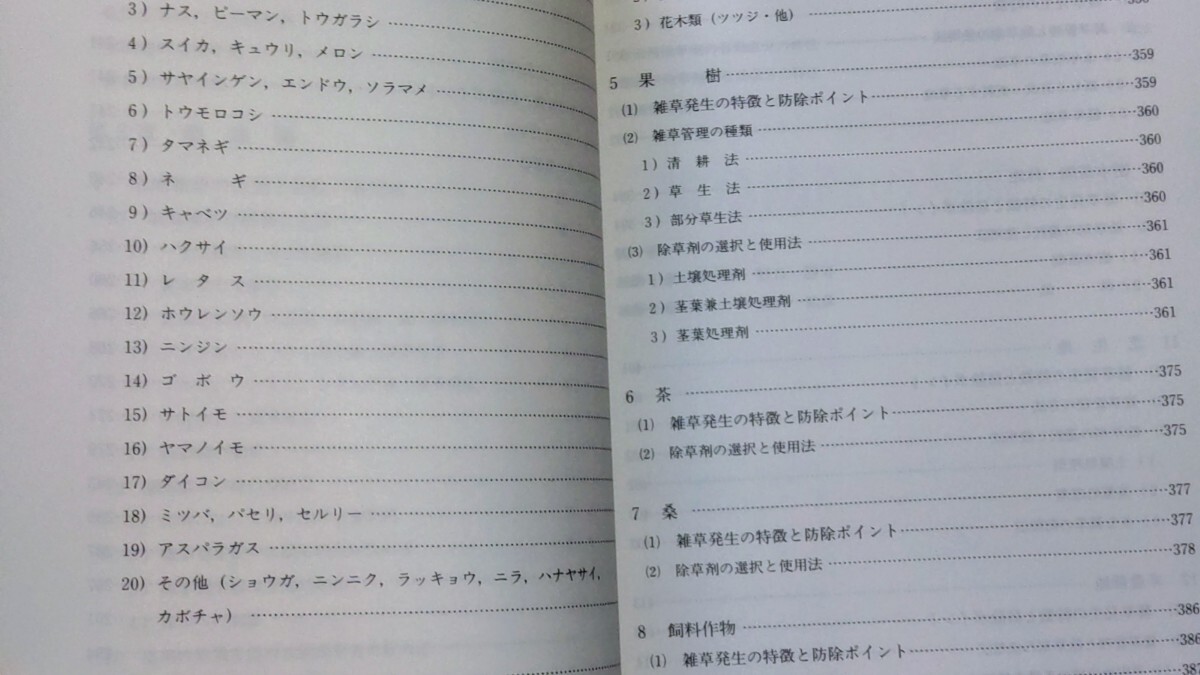 3）ナス，ピーマン，トウガラシ
4）スイカ，キュウリ，メロン
5）サヤインゲン，エンドウ，ソラマメ
6）トウモロコシ
7）タマネギ
8）ネ　　ギ
9）キャベツ
10）ハクサイ
11）レ　タ　ス
12）ホウレンソウ
13）ニンジン
14）ゴ　ボ　ウ
15）サトイモ
16）ヤマノイモ
17）ダイコン
18）ミツバ，パセリ，セルリー
19）アスパラガス
20）その他（ショウガ，ニンニク，ラッキョウ，ニラ，ハナヤサイ，
カボチャ）
3）花木類（ツツジ・他）
5　果　　樹 359
(1)　雑草発生の特徴と防除ポイント 359
(2)　雑草管理の種類 360
1）清　耕　法 360
2）草　生　法 360
3）部分草生法 360
(3)　除草剤の選択と使用法 361
1）土壌処理剤 361
2）茎葉兼土壌処理剤 361
3）茎葉処理剤 361
6　茶 375
(1)　雑草発生の特徴と防除ポイント 375
(2)　除草剤の選択と使用法 375
7　桑 377
(1)　雑草発生の特徴と防除ポイント 377
(2)　除草剤の選択と使用法 378
8　飼料作物 386
(1)　雑草発生の特徴と防除ポイント 386
387